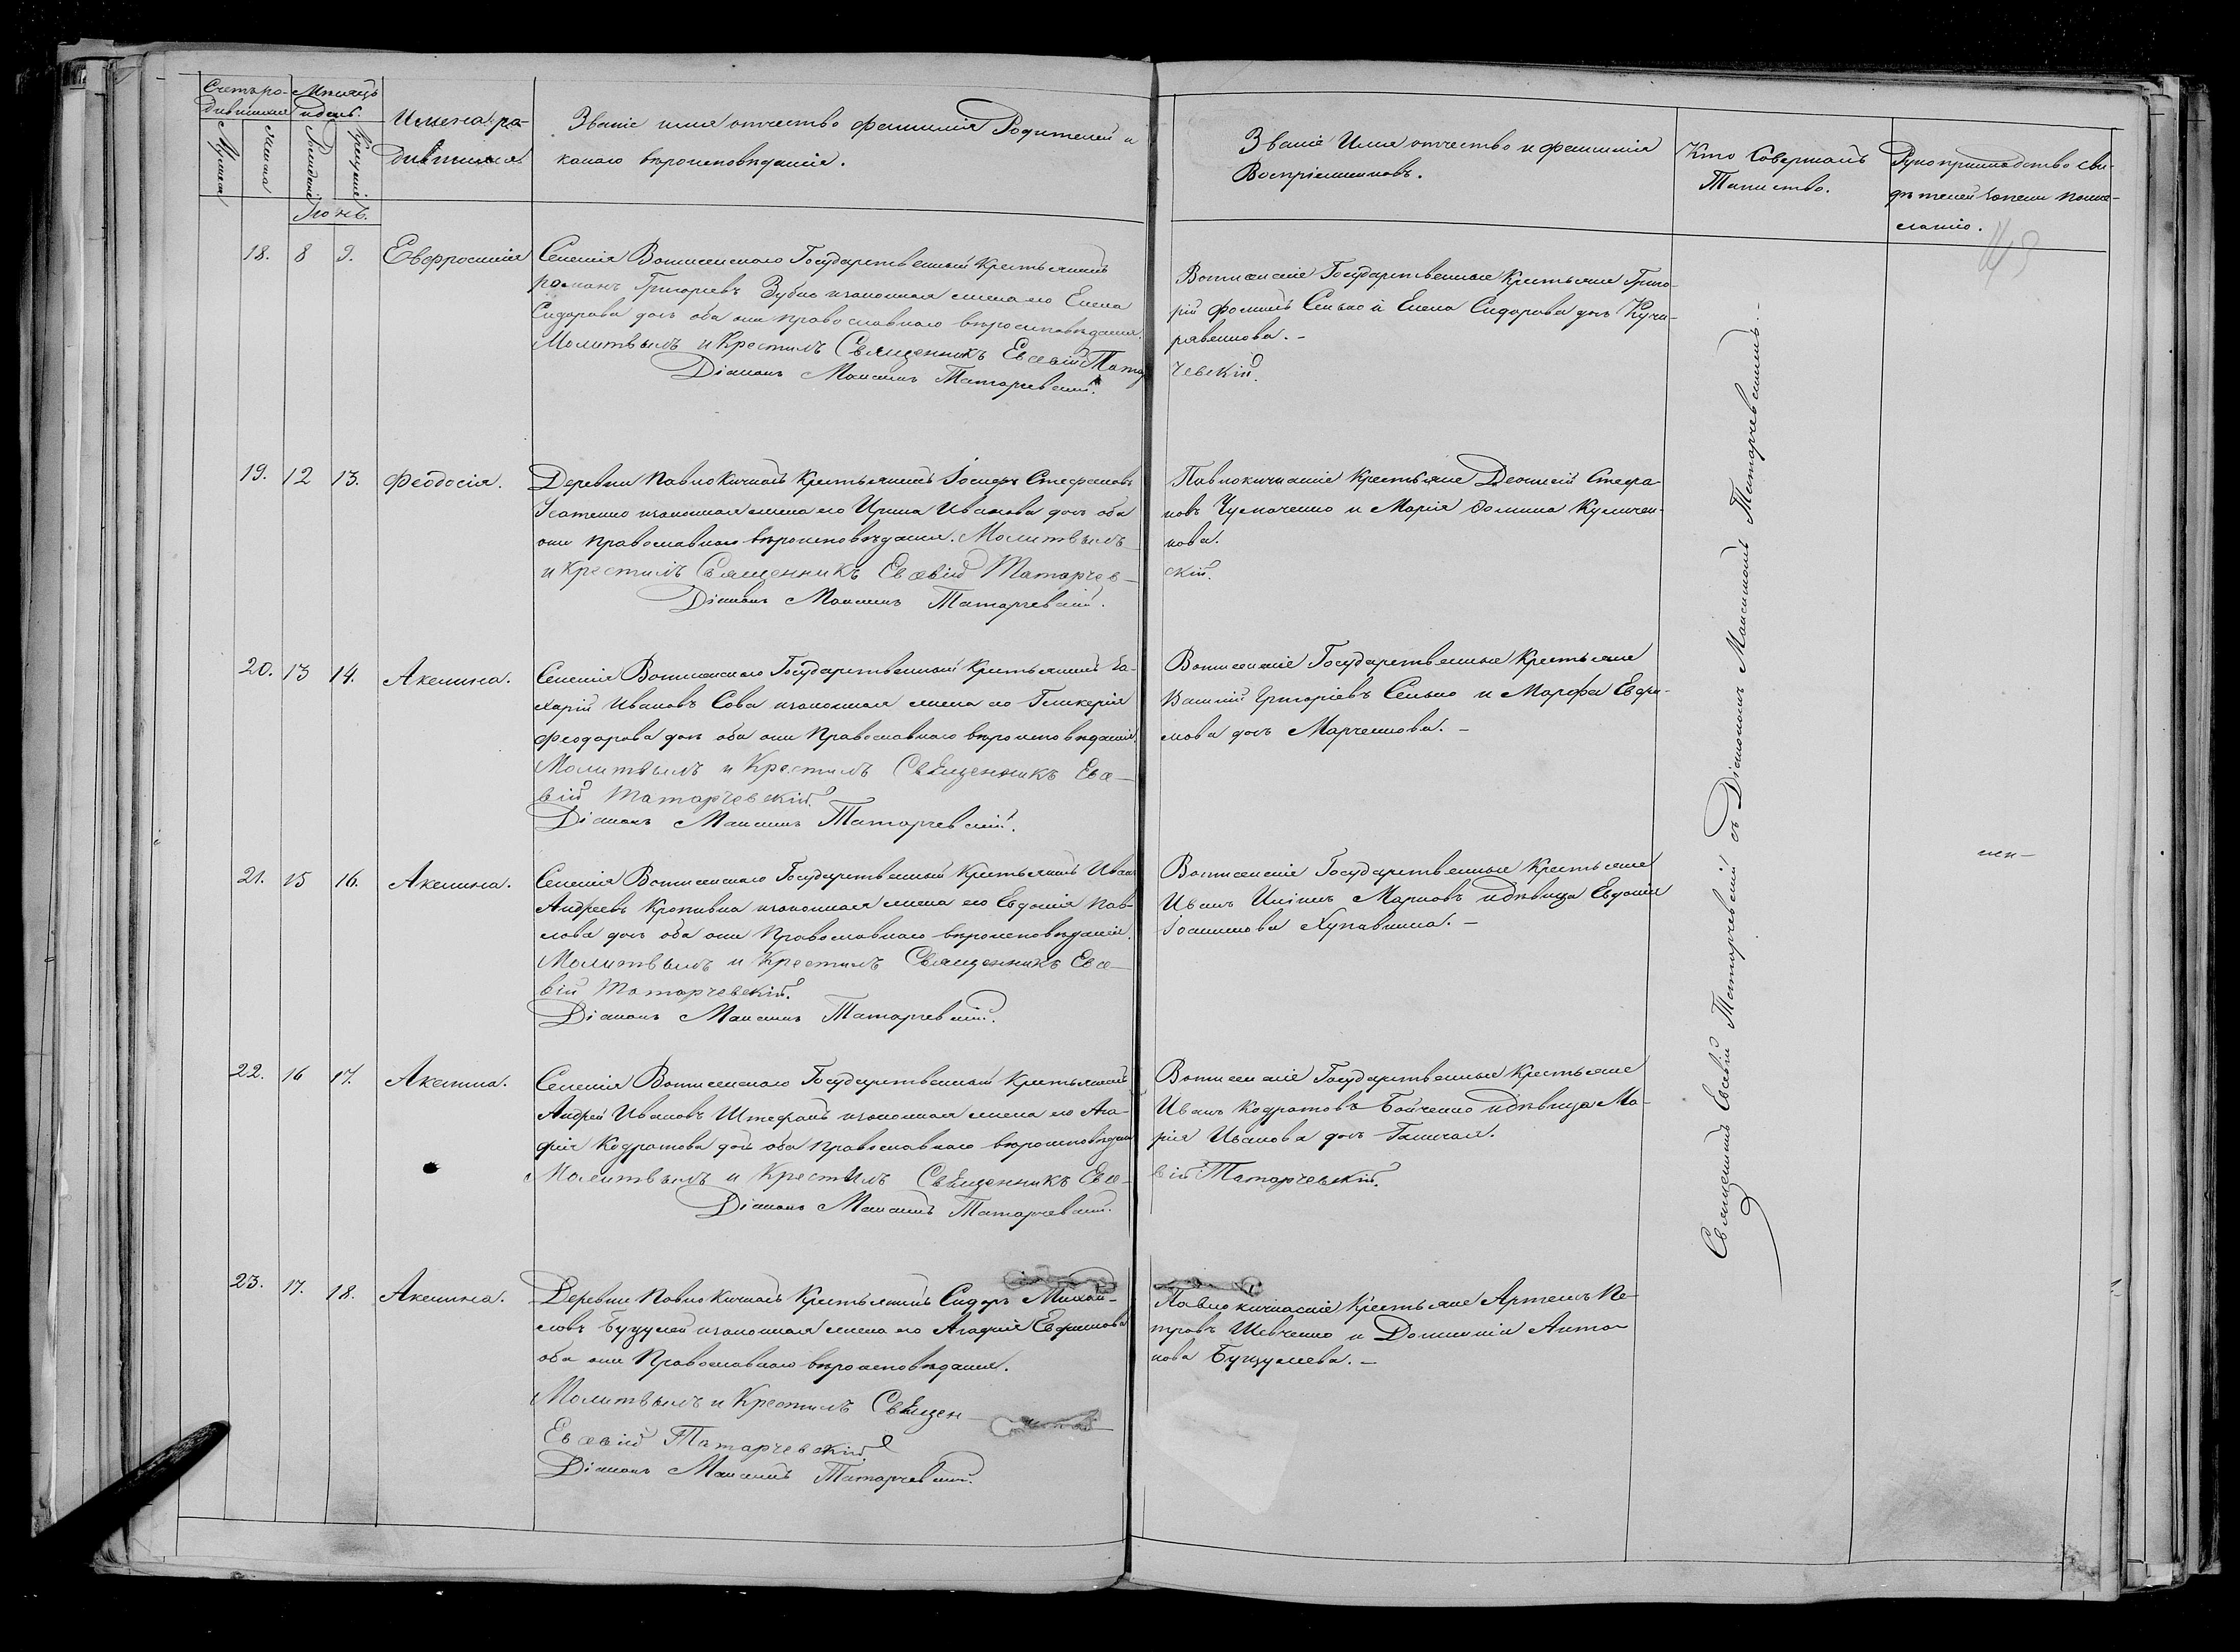 Счетъ ро-
дившихся
Мѣсяцъ
и день.
Мужеска
Женска
Рожденія
Крещенія
Имена ро-
дившихся
Званіе имя отчество фамилія Родителей и
какого вѣроисповѣданія.
Званіе Имя отчество и фамилія
Воспріемниковъ.
Кто Совершалъ
Таинство.
Рукоприкладство сви-
дѣтелей записи по же-
ланію.
Іюнь.
18. 8 9. Евфросинія
Селенія Вотиленского Государственный Крестьянинъ
Романъ Григорьевъ Зубко изаконная жена его Елена
Сидорова дочь оба они православнаго вѣроисповѣданія.
Молитвилъ и Крестилъ Священникъ Евсевій Татар
чевскій.
Діаконъ Максимъ Татарчевскій.
Государственные Крестьяне Григо-
рій Фоминъ Сенько и Елена Сидорова дочь
19. 12 13. Феодосія.
Деревни Павло Кичкасъ Крестьянинъ Іосифъ Стефановъ
изаконная жена его Ирина Иванова дочь оба
они православнаго вѣроисповѣданія. Молитвилъ
и Крестилъ Священникъ Евсевій Татарчев-
скій.
Діаконъ Максимъ Татарчевскій.
Павлокичкаскіе Крестьяне Діонисій Стефа-
новъ Чумаченко и Марія
20. 13 14. Акилина.
Селенія Государственный Крестьянинъ За-
харій Ивановъ Сова изаконная жена его Гликерія
Феодорова дочь оба они Православнаго вѣроисповѣданія.
Молитвилъ и Крестилъ Священникъ Евсе-
вій Татарчевскій.
Діаконъ Максимъ Татарчевскій.
Государственные Крестьяне
Василій Григоріевъ Сенько и Марфа Ефи-
мова дочь Марченкова. -
21. 15 16. Акилина.
Селенія Государственный Крестьянинъ Иванъ
Андреевъ Кропивка изаконная жена его Евдокія Пав-
лова дочь оба они Православнаго вѣроисповѣданія.
Молитвилъ и Крестилъ Священникъ Евсе-
вій Татарчевскій.
Діаконъ Максимъ Татарчевскій.
Государственные Крестьяне
Иванъ Марковъ и дѣвица Евдокія
Іоакимова
22. 16 17. Акилина.
Селенія Государственный Крестьянинъ
Андрей Ивановъ Штефанъ изаконная жена его Ага-
фія Кодратова дочь оба Православнаго вѣроисповѣданія
Молитвилъ и Крестилъ Священникъ Евсе-
вій Татарчевскій.
Діаконъ Максимъ Татарчевскій.
Государственные Крестьяне
Иванъ Кодратовъ Бойченко и дѣвица Ма-
рія Иванова дочь
23. 17. 18. Акилина.
Деревни Павло Кичкасъ Крестьянинъ Сидоръ Михай-
ловъ изаконная жена его Агафія Ефимова
оба они Православнаго вѣроисповѣданія.
Молитвилъ и Крестилъ Священ-
Евсевій Татарчевскій
Діаконъ Максимъ Татарчевскій.
Павлокичкаскіе Крестьяне Артемъ Пе-
тровъ Шевченко и Домникія Анто-
нова
Священникъ Евсевій Татарчевскій съ Діакономъ Максимомъ Татарчевскимъ.